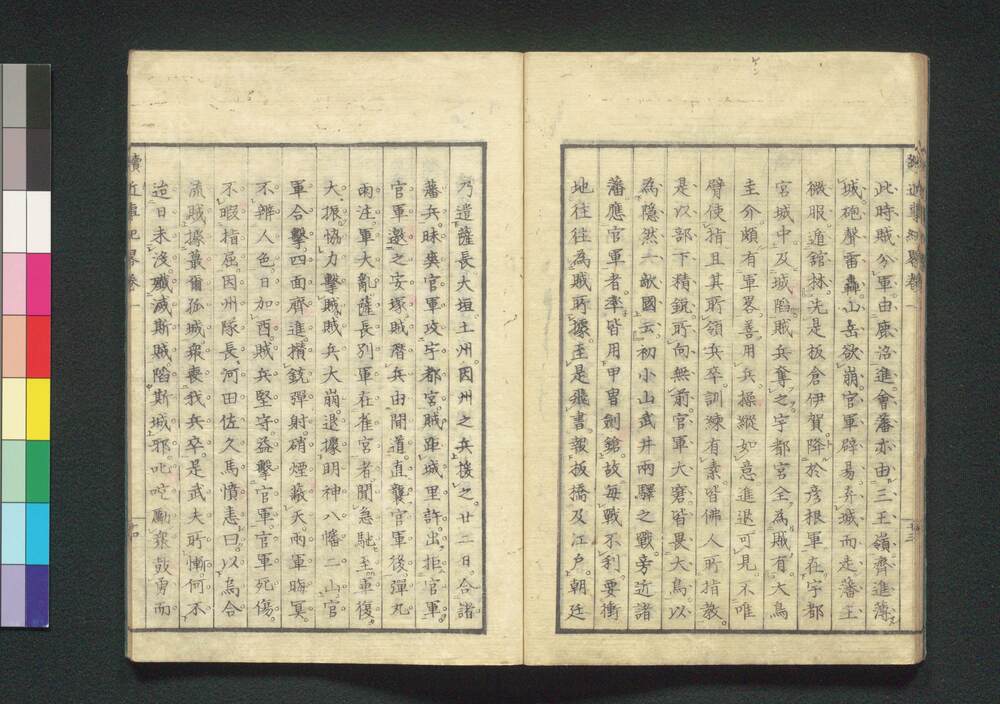 此時賊分軍由鹿沼進會藩亦由三王嶺齊進薄
城砲聲雷轟山岳欲崩官軍辟易弃城而走藩主
微服遁舘林先是板倉伊賀降於彦根軍在宇都
宮城中及城陷賊兵奪之宇都宮全為賊有大鳥
圭介頗有軍畧善用兵操縱如意進退可見不唯
臂使指且其所領兵卒訓練有素皆佛人所指教
是以部下精銳所向無前官軍大窘皆畏大鳥以
為隱然一敵國云初小山武井兩驛之戰旁近諸
藩應官軍者率皆用甲冑劍鎗故每戰不利要衝
地往往為賊所據至是飛書報板橋及江戶朝廷
十三
乃遣薩長大垣土州因州之兵援之廿二日合諸
藩兵昧爽官軍攻宇都宮賊距城里許出拒官軍
官軍邀之安塚賊潛兵由間道直襲官軍後彈丸
雨注軍大亂薩長別軍在雀宮者聞急馳至軍復
大振協力擊賊賊兵大崩退據明神八幡二山官
軍合擊四面齊進攢銃彈射硝煙蔽天雨軍晦冥
不辨人色日加酉賊兵堅守益擊官軍官軍死傷
不暇指屈因州隊長河田佐久馬憤恚曰以烏合
流賊據蕞爾孤城衆喪我兵卒是武夫所慚何不
迨日未沒殲滅斯賊陷斯城邪叱咤勵衆鼓勇而
續近事紀畧卷一
十四